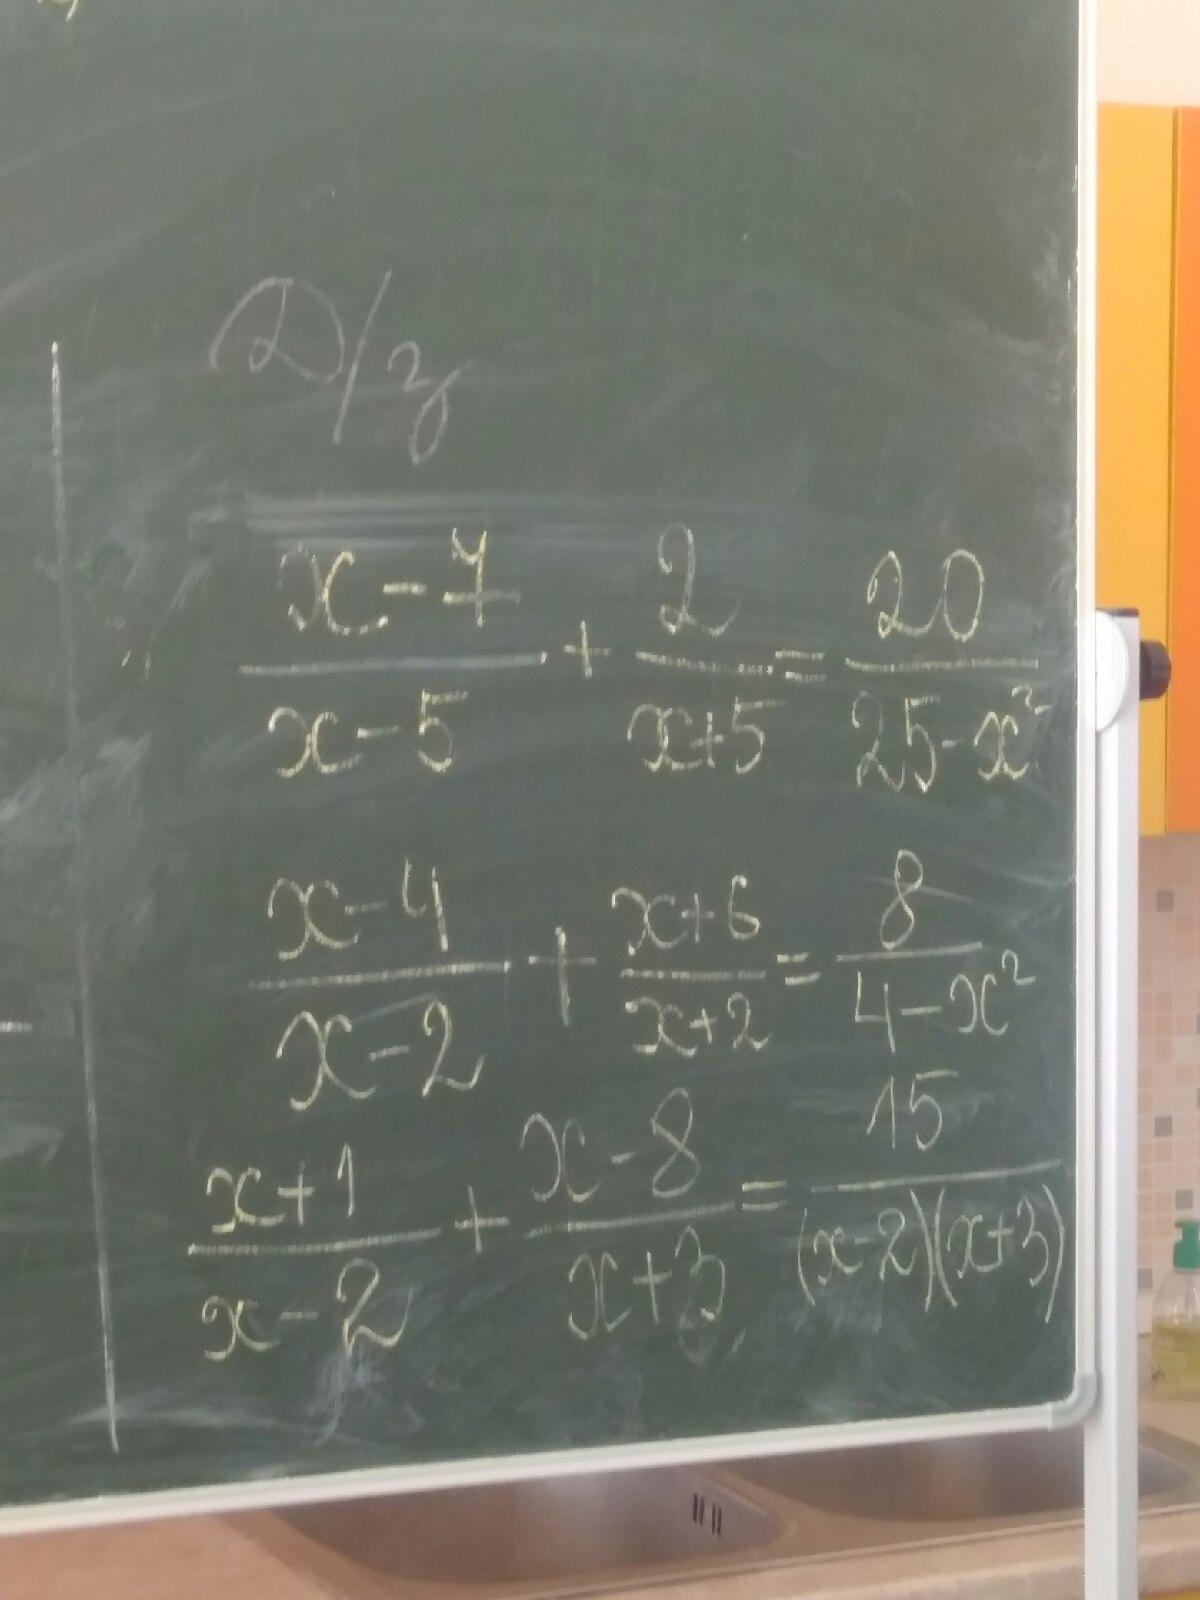 Д/з
x-7/x-5 + 2/x+5 = 20/25-x²
x-4/x-2 + x+6/x+2 = 8/4-x²
x+1/x-2 + x-8/x+3 = 15/(x-2)(x+3)